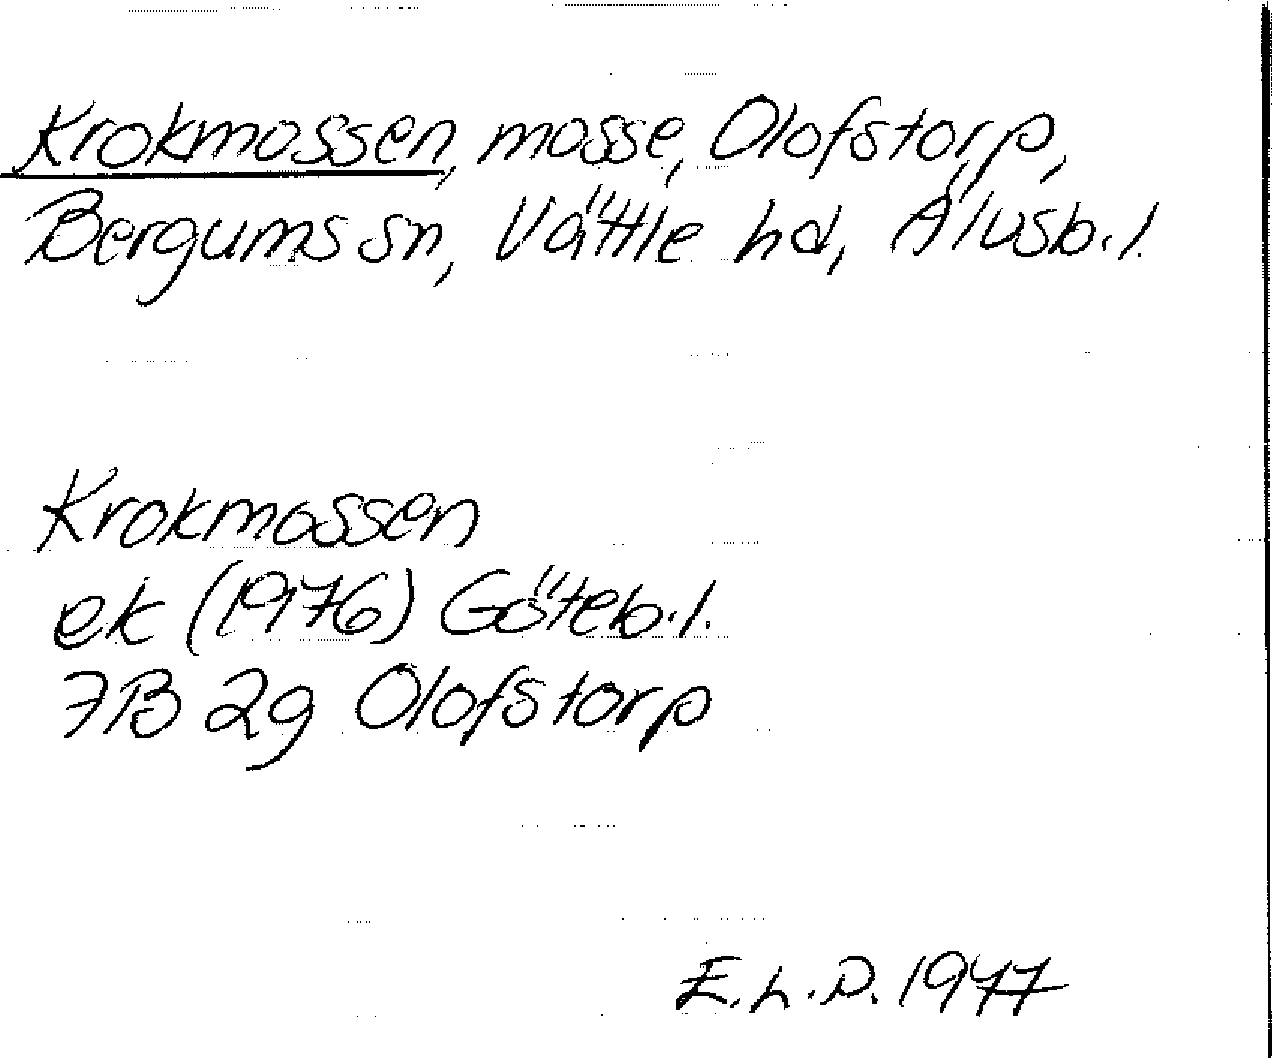 Krokmossen, mosse, Olofstorp,
Bergums sn, Vättle hd, Älvsb.l.
Krokmossen
ek (1976) Göteb.l.
7B 2g Olofstorp
E.L.D. 1977